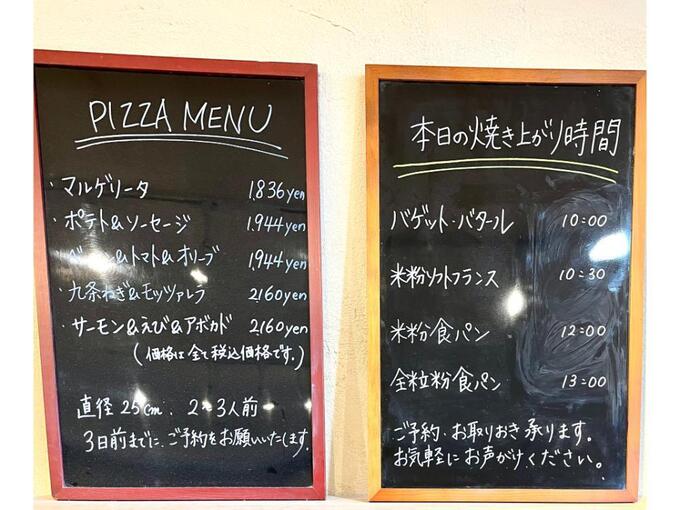 PIZZA MENU
・マルゲリータ 1,836yen
・ポテト&ソーセージ 1,944yen
&トマト&オリーブ 1,944yen
・九条ねぎ&モッツァレラ 2160yen
・サーモン&えび&アボカド 2160yen
(価格は全て税込価格です。)
直径25cm、2~3人前
3日前までに、ご予約をお願いいたします。
本日の焼き上がり時間
バゲット・バタール 10:00
米粉ソフトフランス 10:30
米粉食パン 12:00
全粒粉食パン 13:00
ご予約・お取りおき承ります。
お気軽にお声がけください。